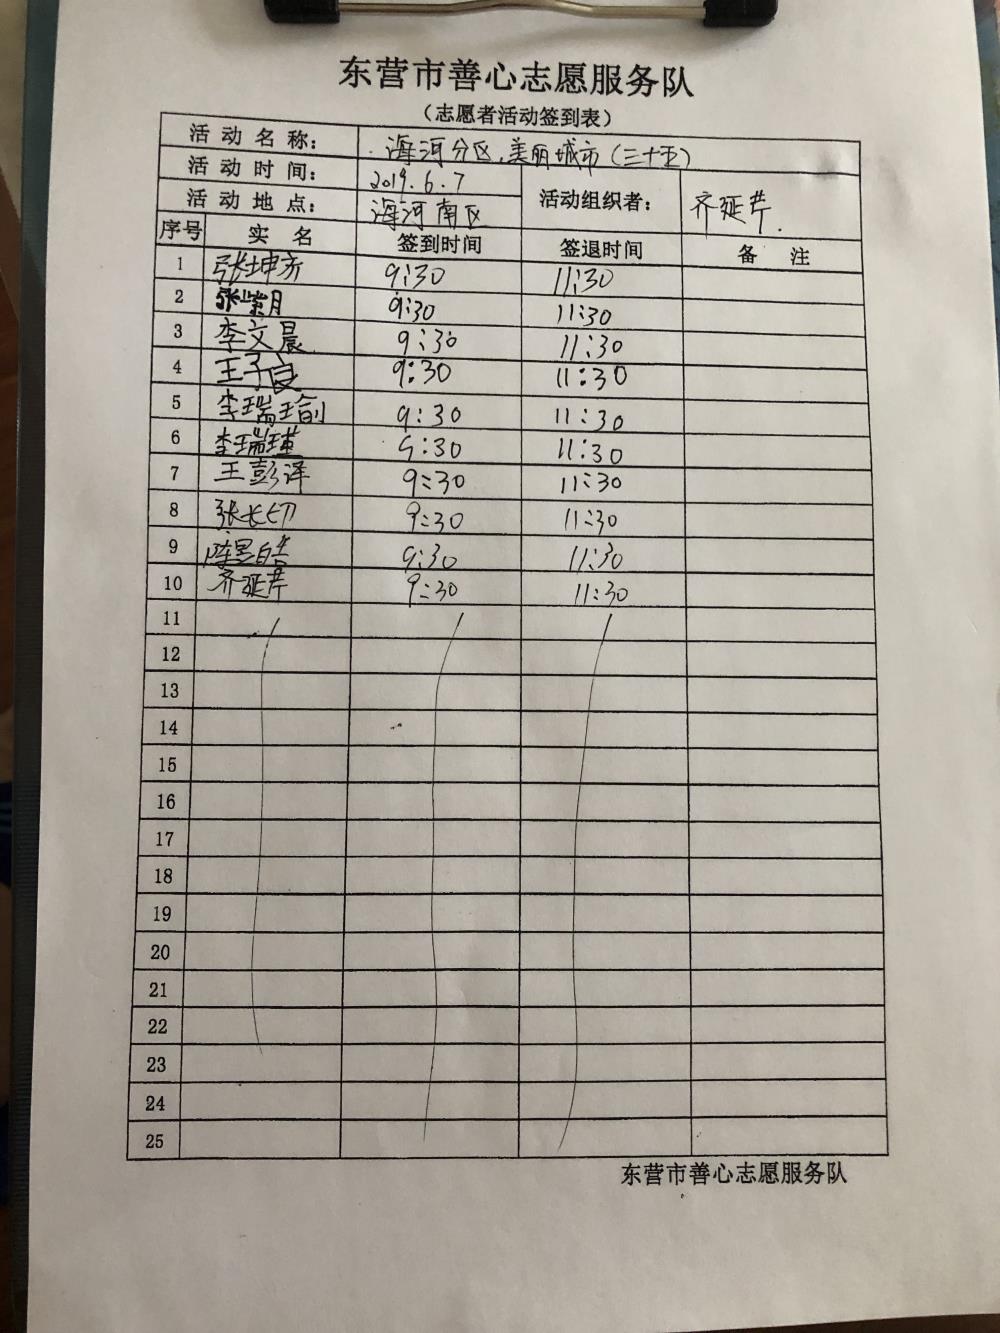 东营市善心志愿服务队
（志愿者活动签到表）
活动名称： 海河分区.美丽城市（三十五）
活动时间： 2019.6.7 活动组织者： 齐延芹.
活动地点： 海河南区
序号 实名 签到时间 签退时间 备注
1 张坤齐 9:30 11:30
2 张紫月 9:30 11:30
3 李文晨 9:30 11:30
4 王子良 9:30 11:30
5 李瑞瑜 9:30 11:30
6 李瑞瑾 9:30 11:30
7 王彭泽 9:30 11:30
8 张长切 9:30 11:30
9 陈昱皓 9:30 11:30
10 齐延芹 9:30 11:30
11
12
13
14
15
16
17
18
19
20
21
22
23
24
25
东营市善心志愿服务队